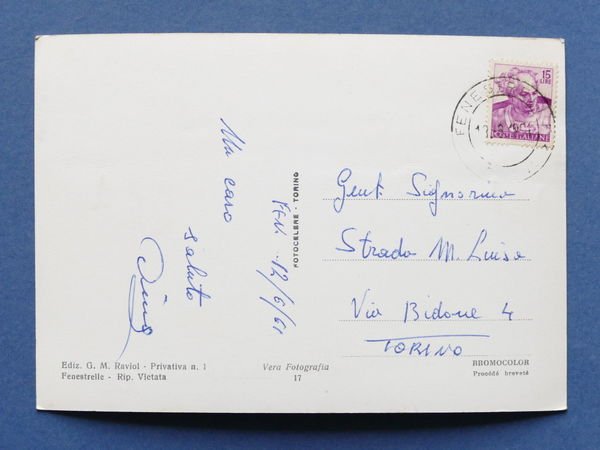 Un caro
saluto
Fen. 12/6/61
FOTOCELERE - TORINO
15
LIRE
POSTE ITALIANE
FENESTRELLE
Gent. Signorina
Strada M. Luisa
Via Bidone 4
TORINO
Ediz. G. M. Raviol - Privativa n. 1
Fenestrelle - Rip. Vietata
Vera Fotografia
17
BROMOCOLOR
Procédé breveté